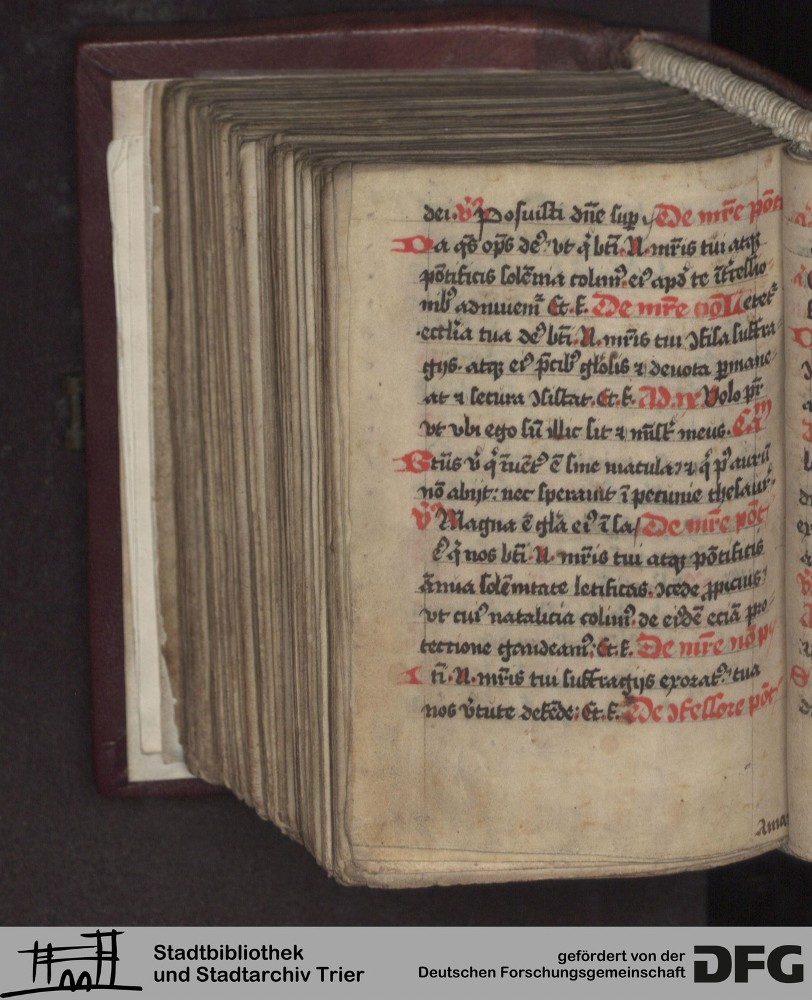 dei. V Posuisti dn̄e sup De mr̄e pōt
Da qs̄ op̄s de᷒ vt q̇ bt̄i .N. mr̄is tui atqꝫ
pōtificis solēnia colim᷒. ei᷒ apd̓ te ītcessio
nib᷒ adiuuem̄ Et. k̄. De mr̄e nō Letet᷑
eccl̄ia tua de᷒ bt̄i .N. mr̄is tui ꝯfisa suffra
gijs. atqꝫ ei᷒ p̄cib᷒ gl̄osis ⁊ deuota ꝑmane
at ⁊ secura ꝯsistat. Et. k̄. Ad. Volo pr̄
vt vbi ego sū illic sit ⁊ mīst᷑ meus.
Btūs v̓ q̇ īuēt᷒ ē sine macula ⁊ q̇ p᷒ aurū
nō abijt: nec sperauit ī pecunie thesaur᷒
V Magna ē glā ei᷒ ī sa De mr̄e pōt
q̇ nos bt̄i .N. mr̄is tui atqꝫ pōtificis
ānua solēnitate letificas. ꝯcede ꝓpicius
vt cui᷒ natalicia colim᷒. de ei᷒dē eciā pro
tectione gaudeam᷒. Et. k̄. De mr̄e nō p
.N. mr̄is tui suffragijs exorat᷒: tua
nos v̓tute defēde: Et. k̄. De ꝯfessore pōt
Stadtbibliothek
und Stadtarchiv Trier
gefördert von der
Deutschen Forschungsgemeinschaft
DFG